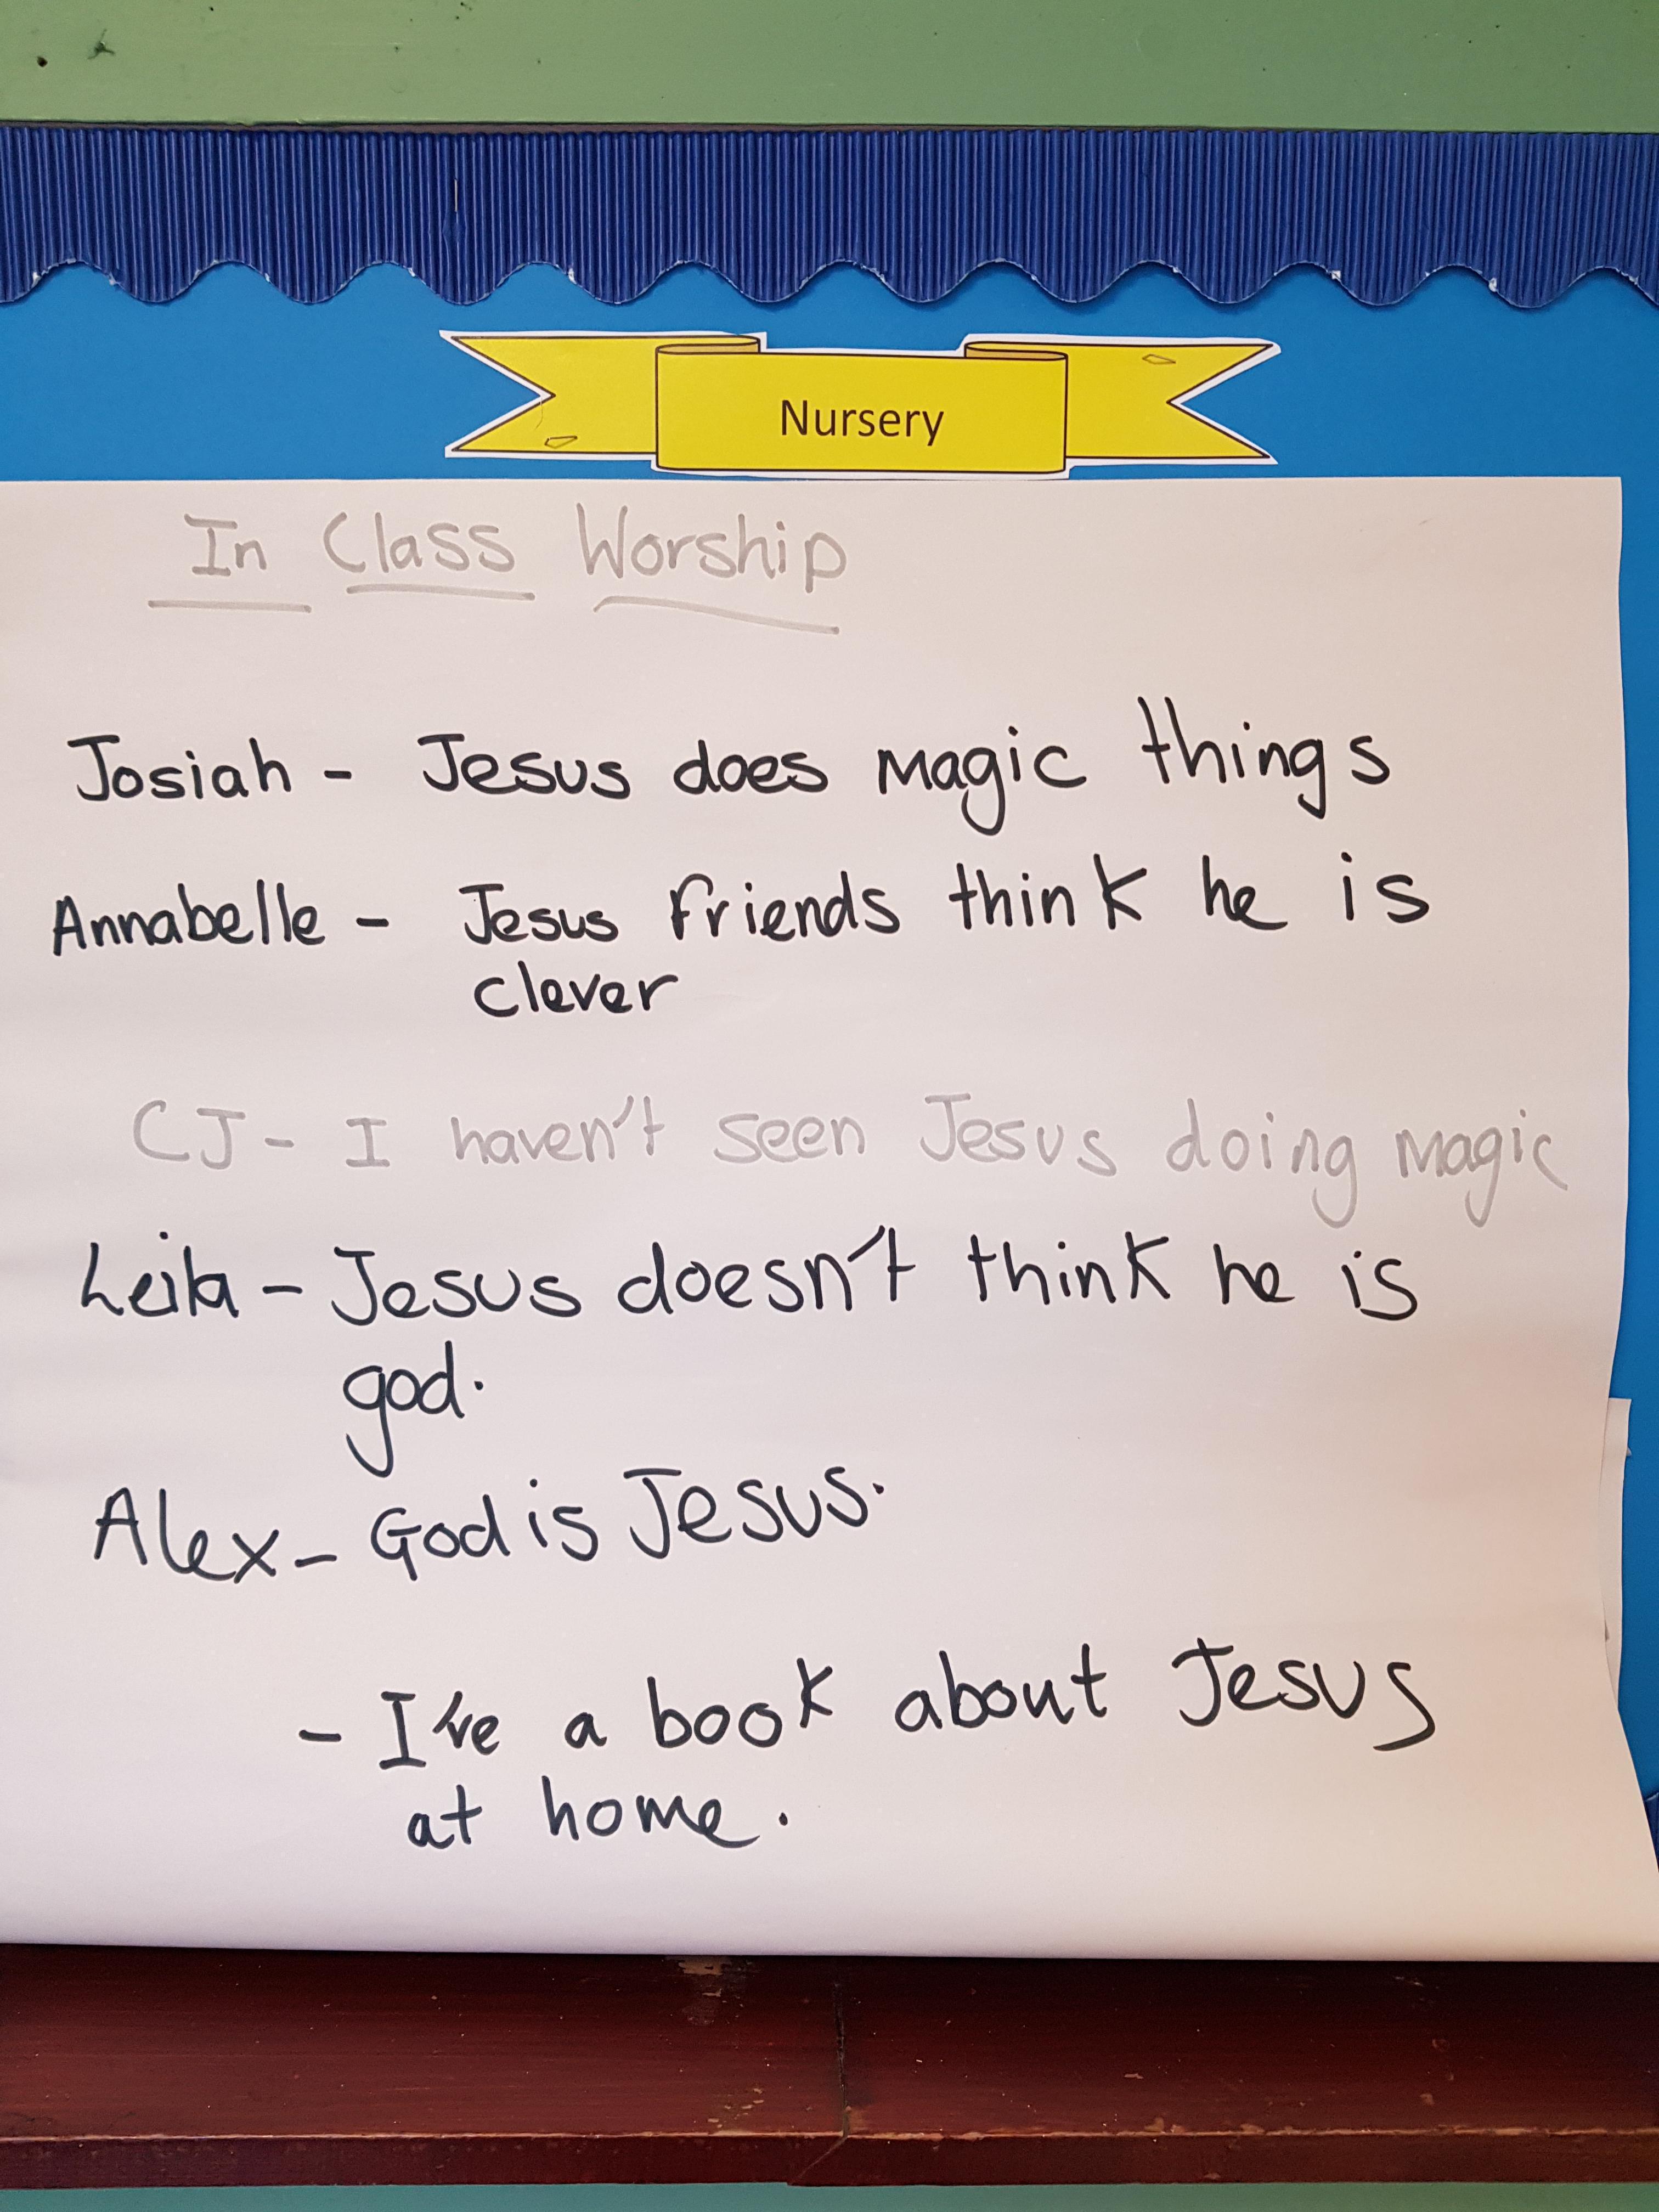 Nursery
In Class Worship
Josiah - Jesus does magic things
Annabelle - Jesus friends think he is
clever
CJ - I haven't seen Jesus doing magic
Leila - Jesus doesn't think he is
god.
Alex - God is Jesus.
- I've a book about Jesus
at home.